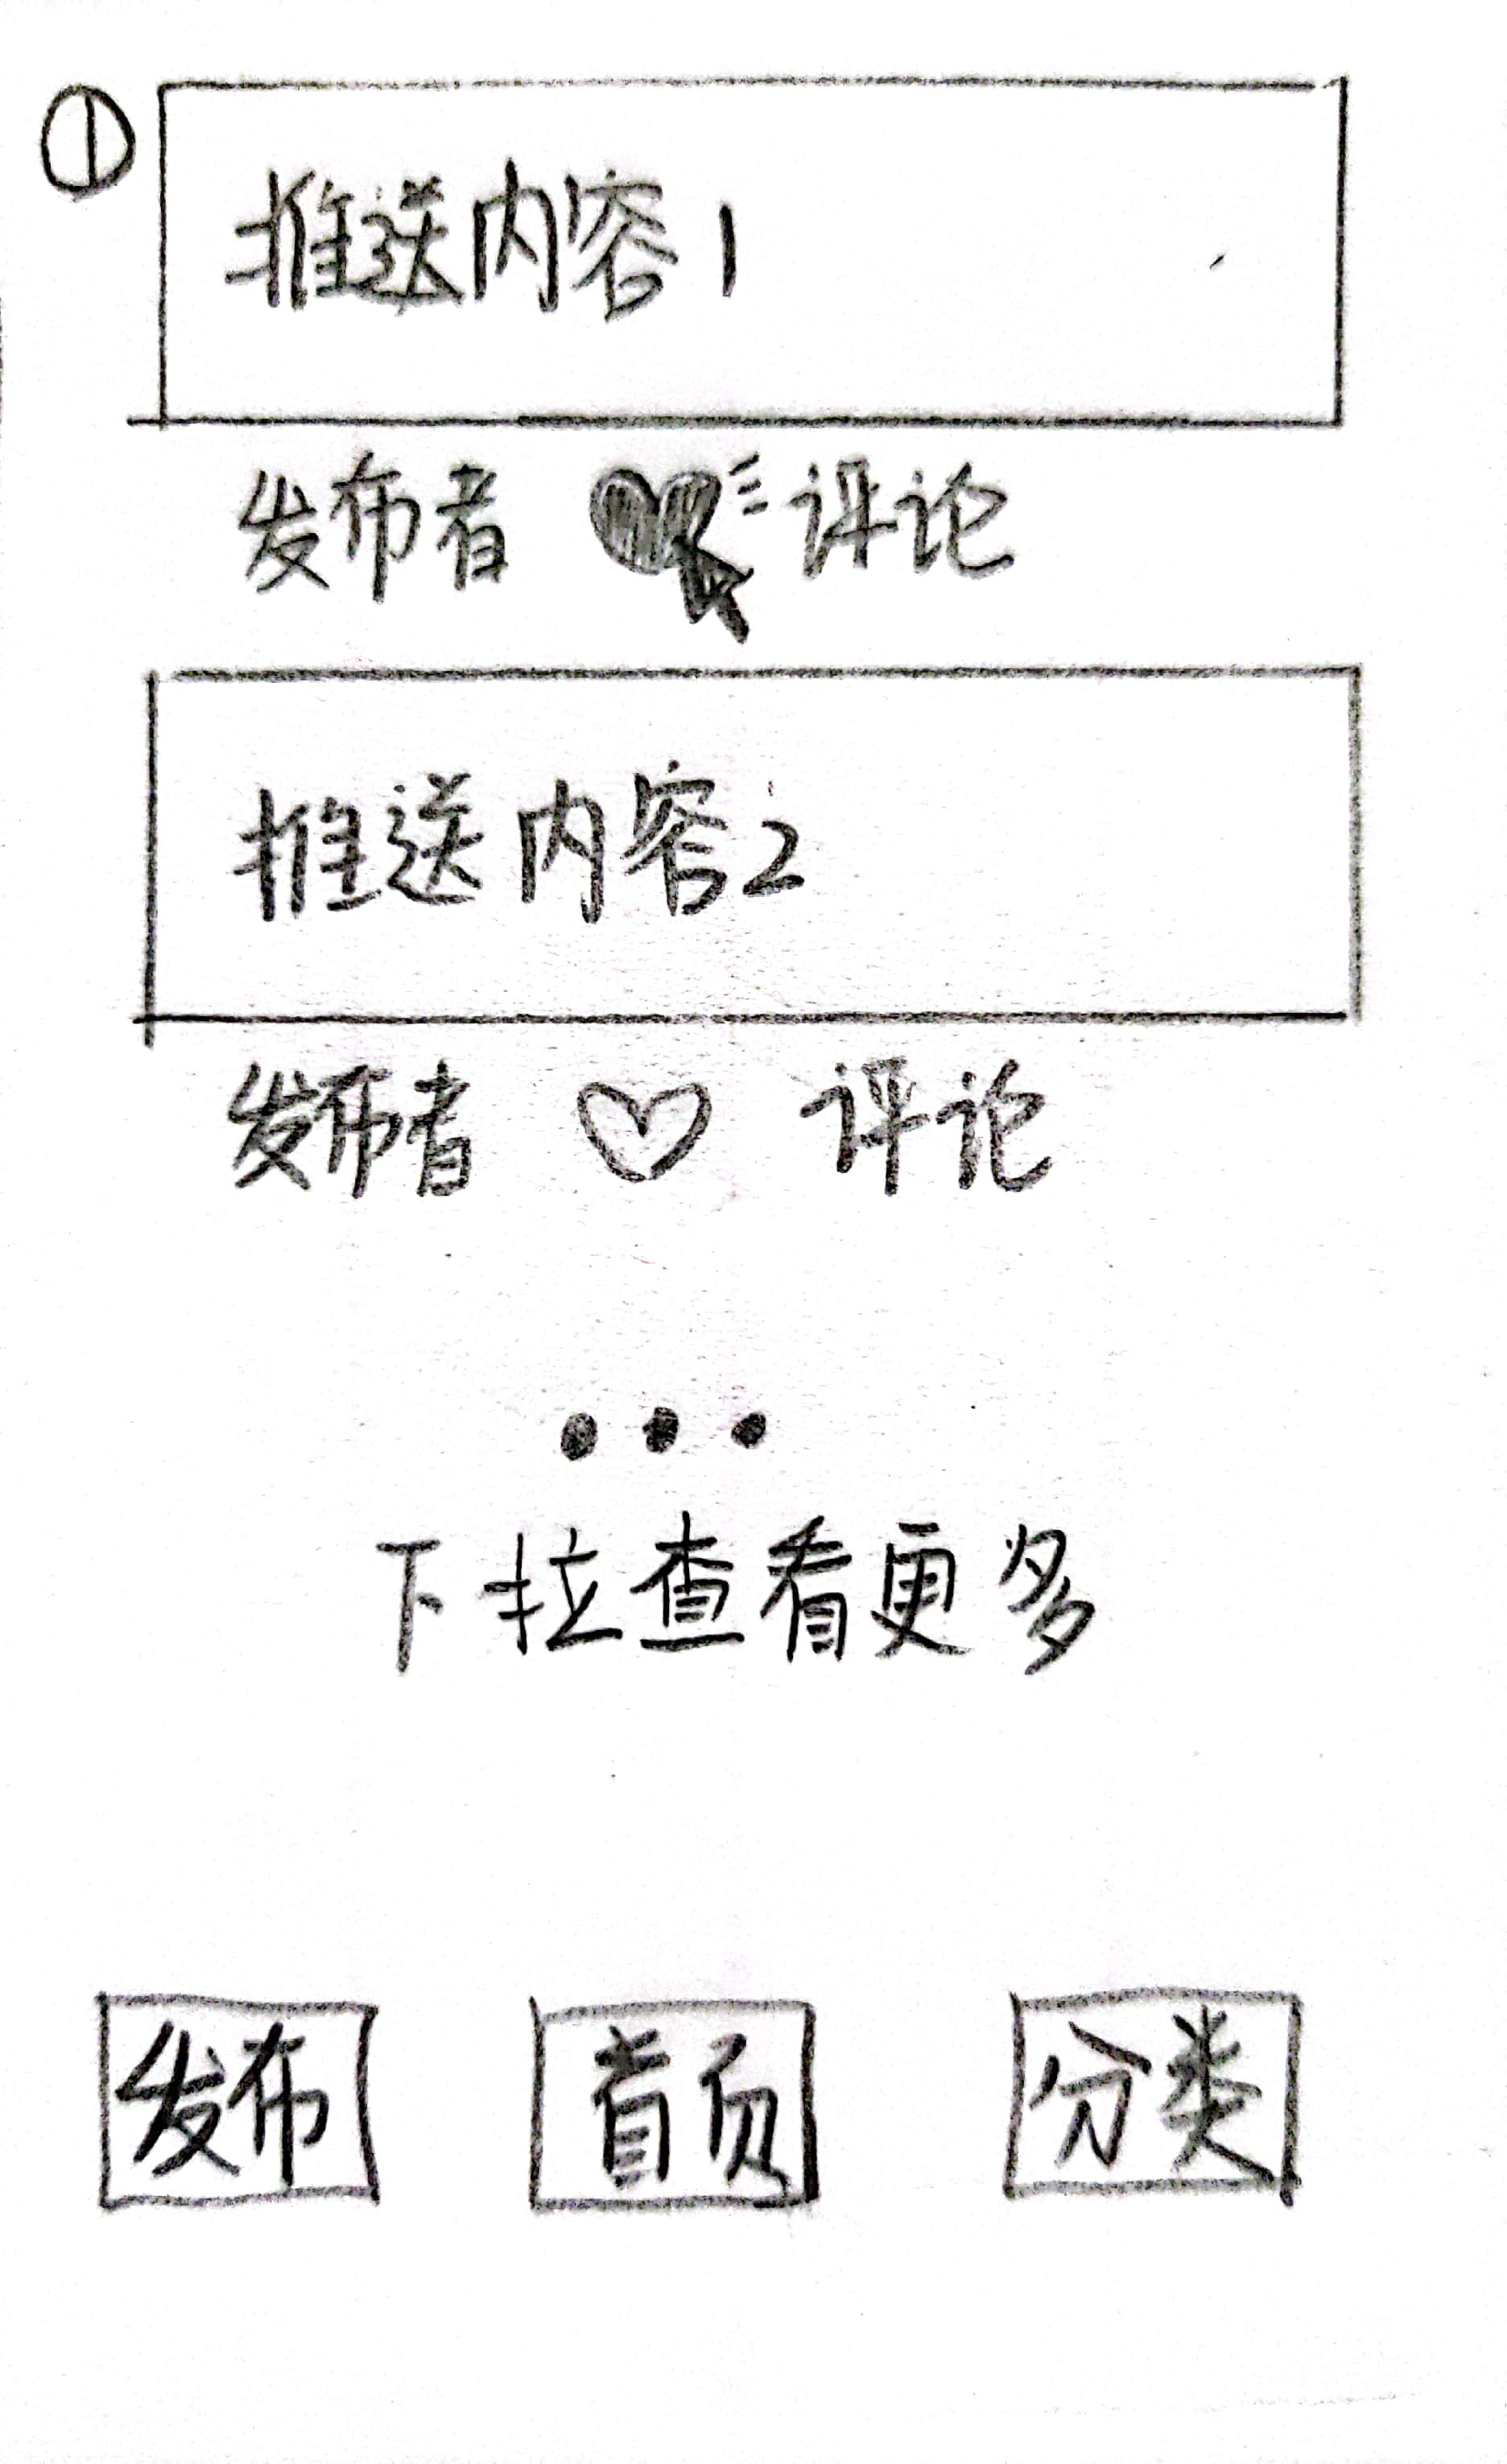 ①
推送内容1
发布者 评论
推送内容2
发布者 评论
•••
下拉查看更多
发布 首页 分类